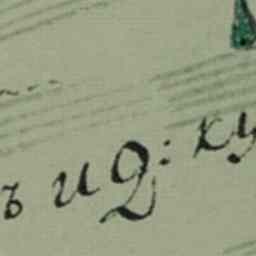 ъ и д: ку